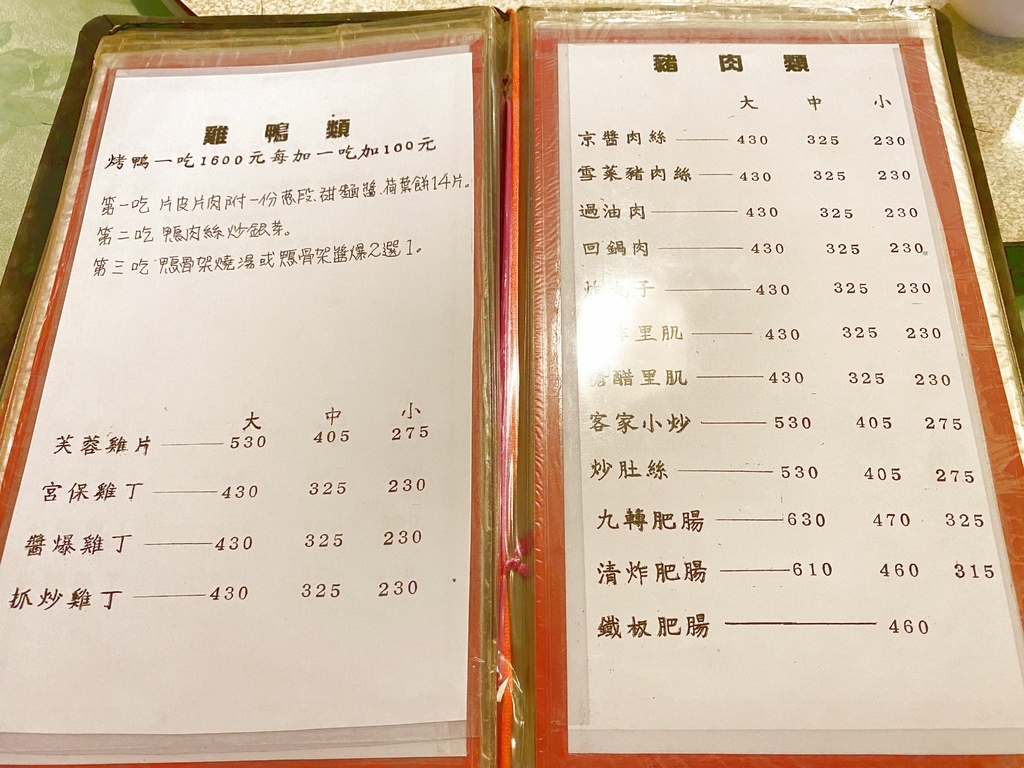 雞鴨類
烤鴨一吃1600元每加一吃加100元
第一吃 片皮片肉附一份蔥段.甜麵醬.荷葉餅14片。
第二吃 鴨肉絲炒銀芽。
第三吃 鴨骨架燒湯或鴨骨架醬爆2選1。
大 中 小
芙蓉雞片 530 405 275
宮保雞丁 430 325 230
醬爆雞丁 430 325 230
抓炒雞丁 430 325 230
豬肉類
大 中 小
京醬肉絲 430 325 230
雪菜豬肉絲 430 325 230
過油肉 430 325 230
回鍋肉 430 325 230
炸丸子 430 325 230
炸里肌 430 325 230
糖醋里肌 430 325 230
客家小炒 530 405 275
炒肚絲 530 405 275
九轉肥腸 630 470 325
清炸肥腸 610 460 315
鐵板肥腸 460